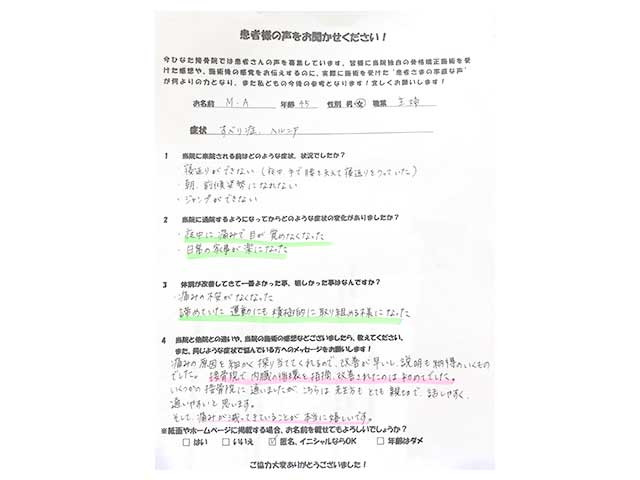 患者様の声をお聞かせください！
今ひなた接骨院では患者さんの声を募集しています。皆様に当院独自の骨格矯正施術を受
けた感想や、施術後の感覚をお伝えするのに、実際に施術を受けた“患者さまの率直な声”
が何よりの力となり、また私どもの今後の参考となります！宜しくお願いします！
お名前 M・A 年齢 45 性別 男・女 職業 主婦
症状 すべり症、ヘルニア
1 当院に来院される前はどのような症状、状況でしたか？
・寝返りができない（夜中 手で腰を支えて寝返りをうっていた）
・朝、前傾姿勢になれない
・ジャンプができない
2 当院に通院するようになってからどのような症状の変化がありましたか？
・夜中に痛みで目が覚めなくなった
・日常の家事が楽になった
3 体調が改善してきて一番よかった事、嬉しかった事はなんですか？
・痛みの不安がなくなった
諦めていた運動にも積極的に取り組める様になった
4 当院と他院との違いや、当院の施術の感想などございましたら、教えてください。
また、同じような症状で悩んでいる方へのメッセージをお願いします！
痛みの原因を細かく探り当ててくれるので、改善が早いし説明も納得のいくもの
でした。接骨院で内臓の循環を指摘、改善されたのは初めてでした。
いくつかの接骨院に通いましたが、こちらは先生方もとても親切で、話しやすく、
通いやすいと思います。
そして、痛みが減ってきていることが本当に嬉しいです。
※紙面やホームページに掲載する場合、お名前を載せてもよろしいでしょうか？
□はい □いいえ ☑匿名、イニシャルならOK □年齢はダメ
ご協力大変ありがとうございました！